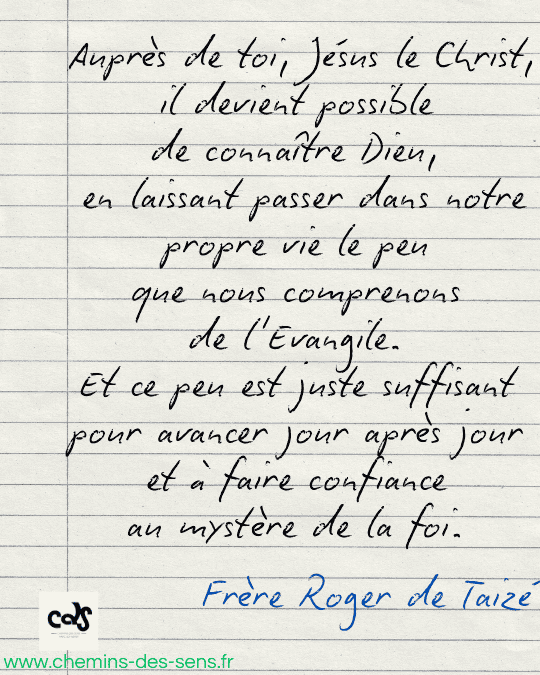 Auprès de toi, Jésus le Christ,
il devient possible
de connaître Dieu,
en laissant passer dans notre
propre vie le peu
que nous comprenons
de l'Evangile.
Et ce peu est juste suffisant
pour avancer jour après jour
et à faire confiance
au mystère de la foi.
Frère Roger de Taizé
cds
www.chemins-des-sens.fr